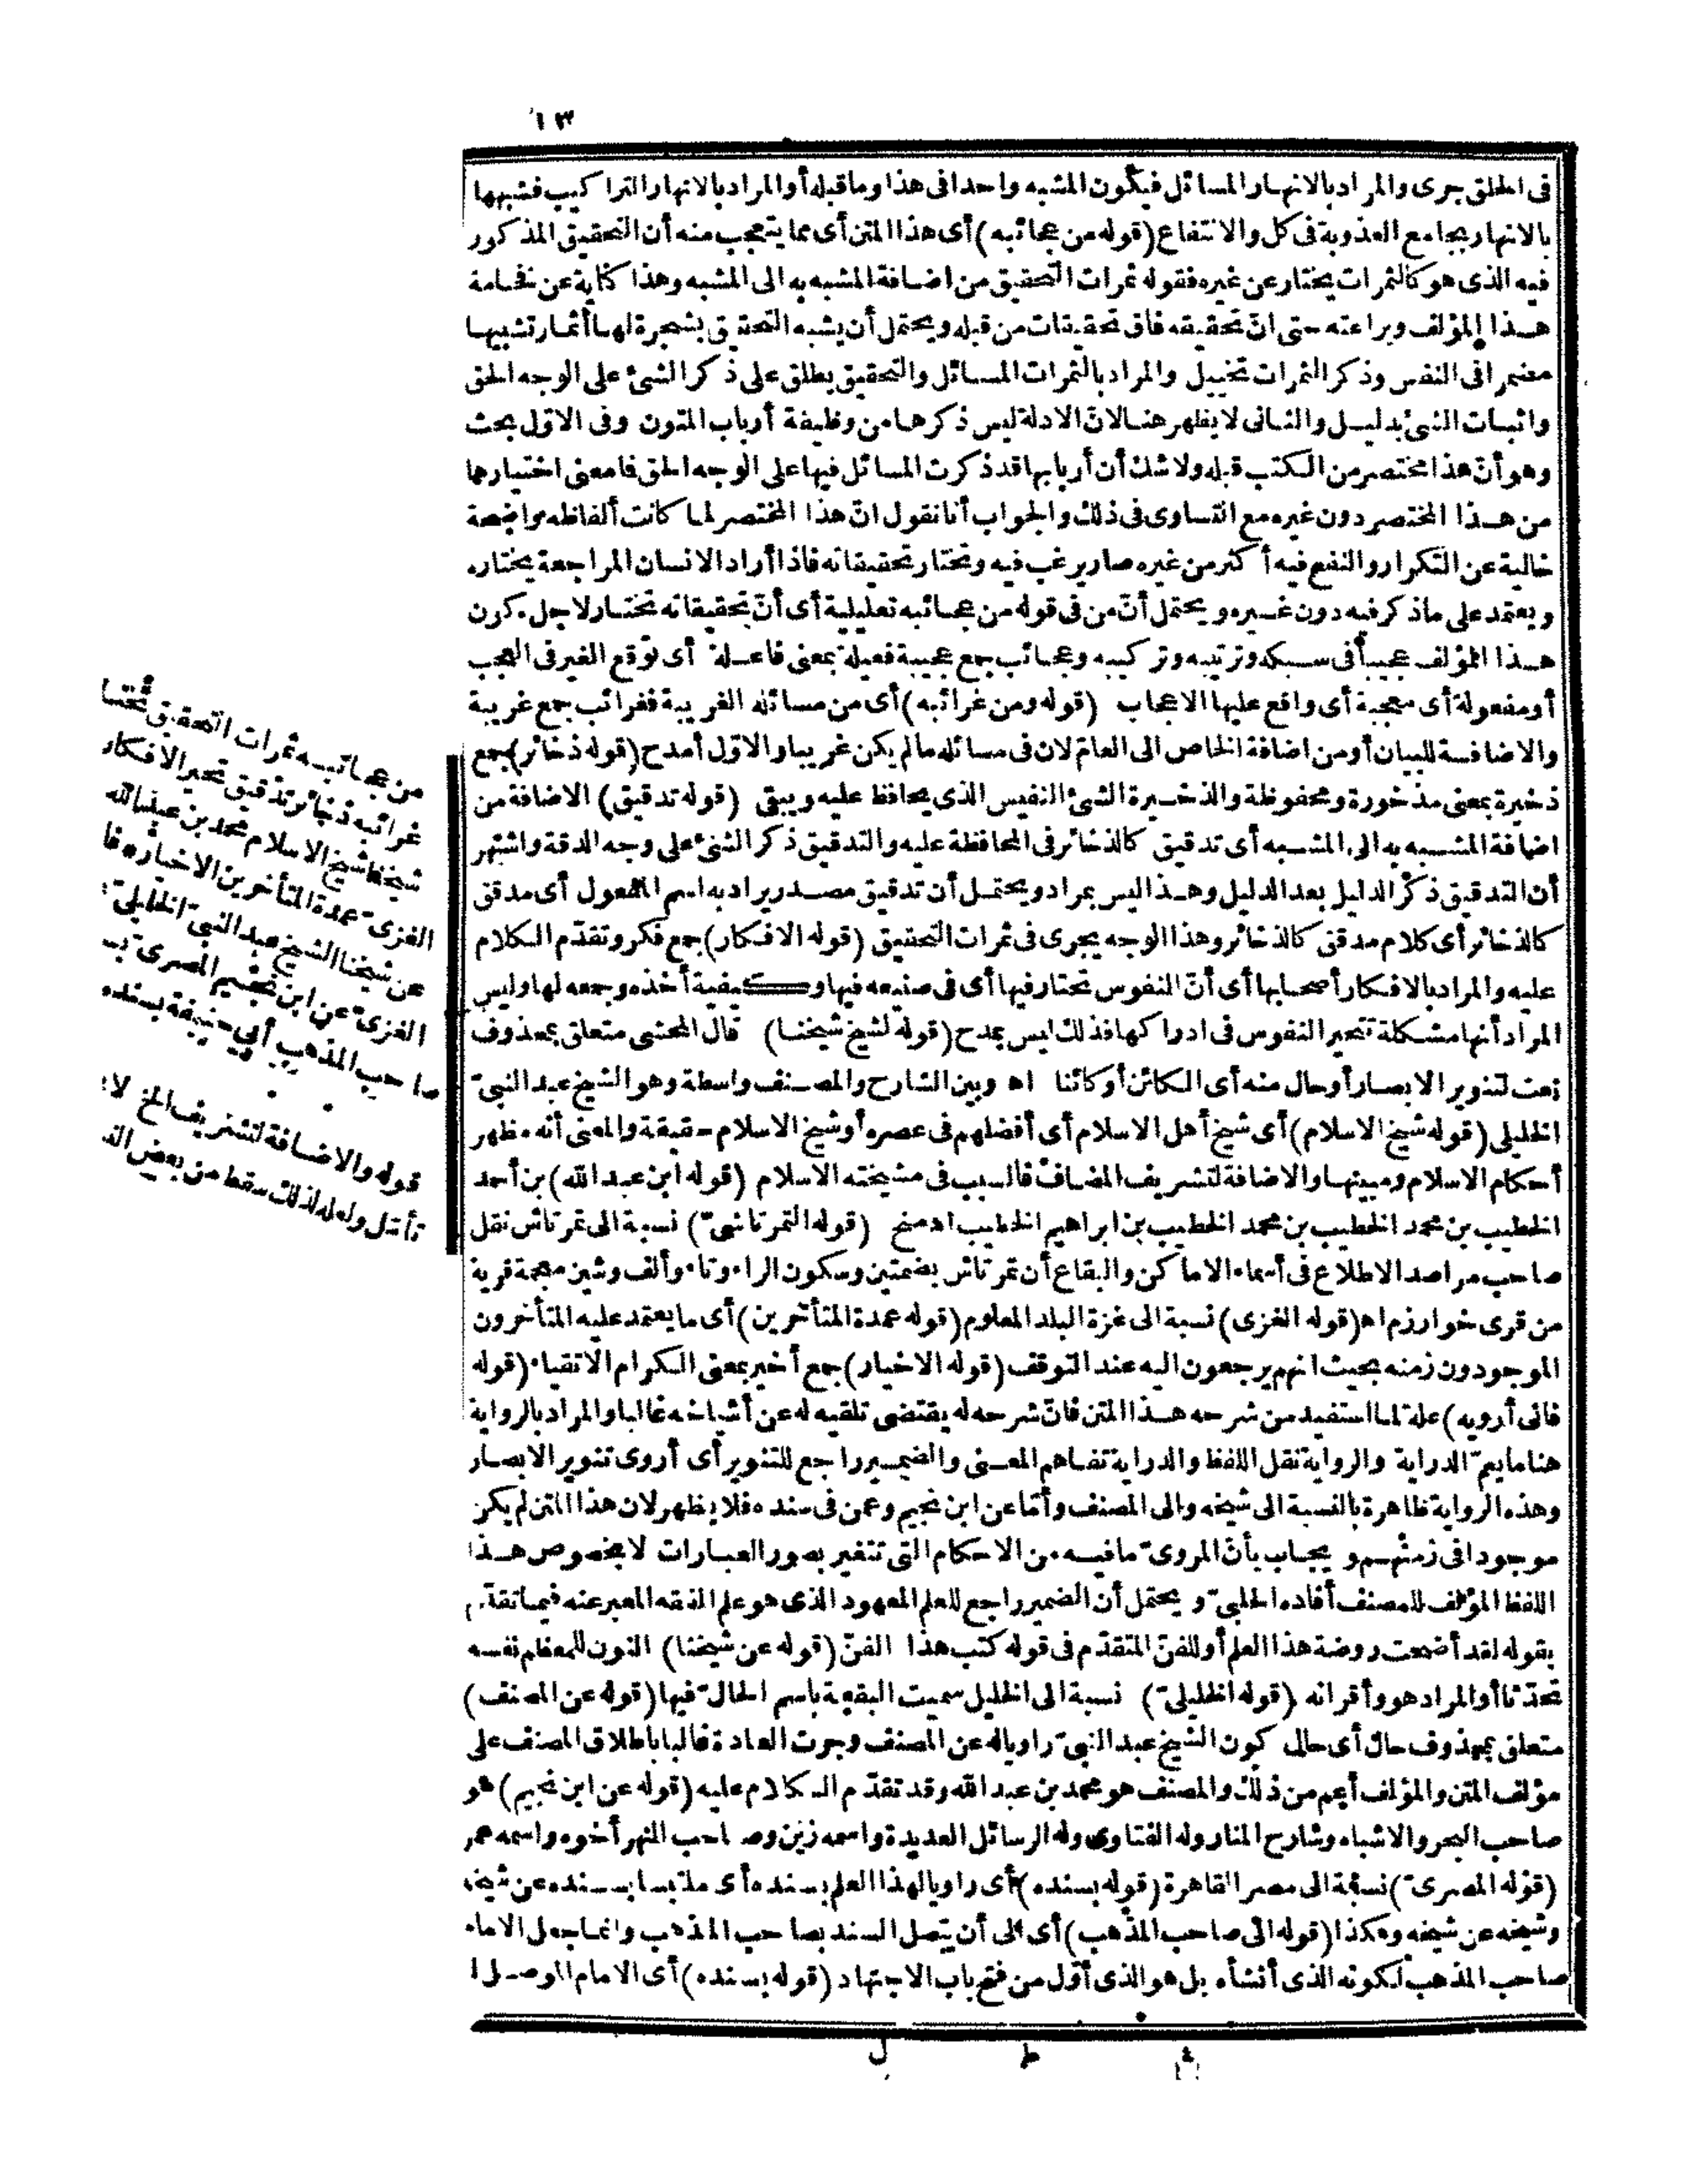 ١٣
فى الحلق جرى والمراد بالانهار المسائل فيكون المشبه واحدا فى هذا وما قبله أو المراد بالانهار التراكيب فشبهها
بالانهار بجامع العذوبة فى كل والانتفاع (قوله من عجائبه) أى هذا المتن أى مما يتعجب منه أن التحقيق المذكور
فيه الذى هو كالثمرات يختار عن غيره فقوله ثمرات التحقيق من اضافة المشبه به الى المشبه وهذا كناية عن فخامة
هذا المؤلف وبراعته حتى انّ تحقيقه فاق تحقيقات من قبله ويحتمل أن يشبه التحقيق بشجرة لها أثمار تشبيها
مضمرا فى النفس وذكر الثمرات تخييل والمراد بالثمرات المسائل والتحقيق يطلق على ذكر الشئ على الوجه الحق
واثبات الشئ بدليل والثانى لا يظهر هنا لانّ الادلة ليس ذكرها من وظيفة أرباب المتون وفى الاوّل بحث
وهو أنّ هذا مختصر من الكتب قبله ولا شك أن أربابها قد ذكرت المسائل فيها على الوجه الحق فما معنى اختيارها
من هذا المختصر دون غيره مع التساوى فى ذلك والجواب أنا نقول انّ هذا المختصر لما كانت ألفاظه واضحة
خالية عن التكرار والنفع فيه أكثر من غيره صار يرغب فيه وتختار تحقيقاته فاذا أراد الانسان المراجعة يختاره
ويعتمد على ماذكر فيه دون غيره ويحتمل أنّ من فى قوله من عجائبه تعليلية أى أنّ تحقيقاته تختار لاجل كون
هذا المؤلف عجيبا فى سبكه وترتيبه وتركيبه وعجائب جمع عجيبة فعيلة بمعنى فاعلة أى توقع الغير فى العجب
أو مفعولة أى معجبة أى واقع عليها الاعجاب (قوله ومن غرائبه) أى من مسائله الغريبة فغرائب جمع غريبة
والاضافة للبيان أو من اضافة الخاص الى العام لان فى مسائله مالم يكن غريبا والاوّل أمدح (قوله ذخائر) جمع
ذخيرة بمعنى مذخورة ومحفوظة والذخيرة الشئ النفيس الذى يحافظ عليه ويبقى (قوله تدقيق) الاضافة من
اضافة المشبه به الى المشبه أى تدقيق كالذخائر فى المحافظة عليه والتدقيق ذكر الشئ على وجه الدقة واشتهر
أن التدقيق ذكر الدليل بعد الدليل وهذا ليس بمراد ويحتمل أن تدقيق مصدر يراد به اسم المفعول أى مدقق
كالذخائر أى كلام مدقق كالذخائر وهذا الوجه يجرى فى ثمرات التحقيق (قوله الافكار) جمع فكر وتقدّم الكلام
عليه والمراد بالافكار أصحابها أى أنّ النفوس تحتار فيها أى فى صنيعه فيها وكيفية أخذه وجمعه لها وليس
المراد أنها مشكلة تتحير النفوس فى ادراكها فذلك ليس بمدح (قوله لشيخ شيخنا) قال المحشى متعلق بمحذوف
نعت لتنوير الابصار أو حال منه أى الكائن أو كائنا اه وبين الشارح والمصنف واسطة وهو الشيخ عبد النبىّ
الخليلى (قوله شيخ الاسلام) أى شيخ أهل الاسلام أى أفضلهم فى عصره أو شيخ الاسلام حقيقة والمعنى أنه مظهر
أحكام الاسلام ومبينها والاضافة لتشريف المضاف فالسبب فى مشيخته الاسلام (قوله ابن عبد الله) بن أحمد
الخطيب بن محمد الخطيب بن محمد الخطيب بن ابراهيم الخطيب اه منح (قوله التمرتاشىّ) نسبة الى تمرتاش نقل
صاحب مراصد الاطلاع فى أسماء الاماكن والبقاع أن تمرتاش بضمتين وسكون الراء وتاء وألف وشين معجمة قرية
من قرى خوارزم اه (قوله الغزى) نسبة الى غزة البلد المعلوم (قوله عمدة المتأخرين) أى ما يعتمد عليه المتأخرون
الموجودون زمنه بحيث انهم يرجعون اليه عند التوقف (قوله الاخيار) جمع أخير بمعنى الكرام الاتقياء (قوله
فانى أرويه) علة لما استفيد من شرحه هذا المتن فانّ شرحه له يقتضى تلقيه له عن أشياخه غالبا والمراد بالرواية
هنا ما يعمّ الدراية والرواية نقل اللفظ والدراية تفاهم المعنى والضمير راجع للتنوير أى أروى تنوير الابصار
وهذه الرواية ظاهرة بالنسبة الى شيخه والى المصنف وأمّا عن ابن نجيم وعمن فى سنده فلا يظهر لان هذا المتن لم يكن
موجودا فى زمنهم ويجاب بأنّ المروىّ مافيه من الاحكام التى تتغير بصور العبارات لا بخصوص هذا
اللفظ المؤلف للمصنف أفاده الحلبىّ ويحتمل أن الضمير راجع للعلم المعهود الذى هو علم الفقه المعبر عنه فيما تقدّم
بقوله لقد أضحت روضة هذا العلم أو للفنّ المتقدّم فى قوله كتب هذا الفنّ (قوله عن شيخنا) النون للمعظم نفسه
تحدّثا أو المراد هو وأقرانه (قوله الخليلىّ) نسبة الى الخليل سميت البقعة باسم الحالّ فيها (قوله عن المصنف)
متعلق بمحذوف حال أى حال كون الشيخ عبد النبىّ راويا له عن المصنف وجرت العادة غالبا باطلاق المصنف على
مؤلف المتن والمؤلف أعم من ذلك والمصنف هو محمد بن عبد الله وقد تقدّم الكلام عليه (قوله عن ابن نجيم) هو
صاحب البحر والاشباه وشارح المنار وله الفتاوى وله الرسائل العديدة واسمه زين وصاحب النهر أخوه واسمه عمر
(قوله المصرىّ) نسبة الى مصر القاهرة (قوله بسنده) أى راويا لهذا العلم بسنده أى ملتبسا بسنده عن شيخه
وشيخه عن شيخه وهكذا (قوله الى صاحب المذهب) أى الى أن يتصل السند بصاحب المذهب وانما جعل الامام
صاحب المذهب لكونه الذى أنشأه بل هو الذى أوّل من فتح باب الاجتهاد (قوله بسنده) أى الامام الموصل ا
من عجائبه ثمرات التحقيق تختا
غرائبه ذخائر تدقيق تحير الافكار
شيخنا شيخ الاسلام محمد بن عبد الله
الغزىّ عمدة المتأخرين الاخيار فا
عن شيخنا الشيخ عبد النبىّ الخليلىّ
الغزىّ عن ابن نجيم المصرىّ بسـ
صاحب المذهب أبى حنيفة بسنده
قوله والاضافة لتشريف الخ لا
تأمّل ولعله لذلك سقط من بعض الن
ط ل